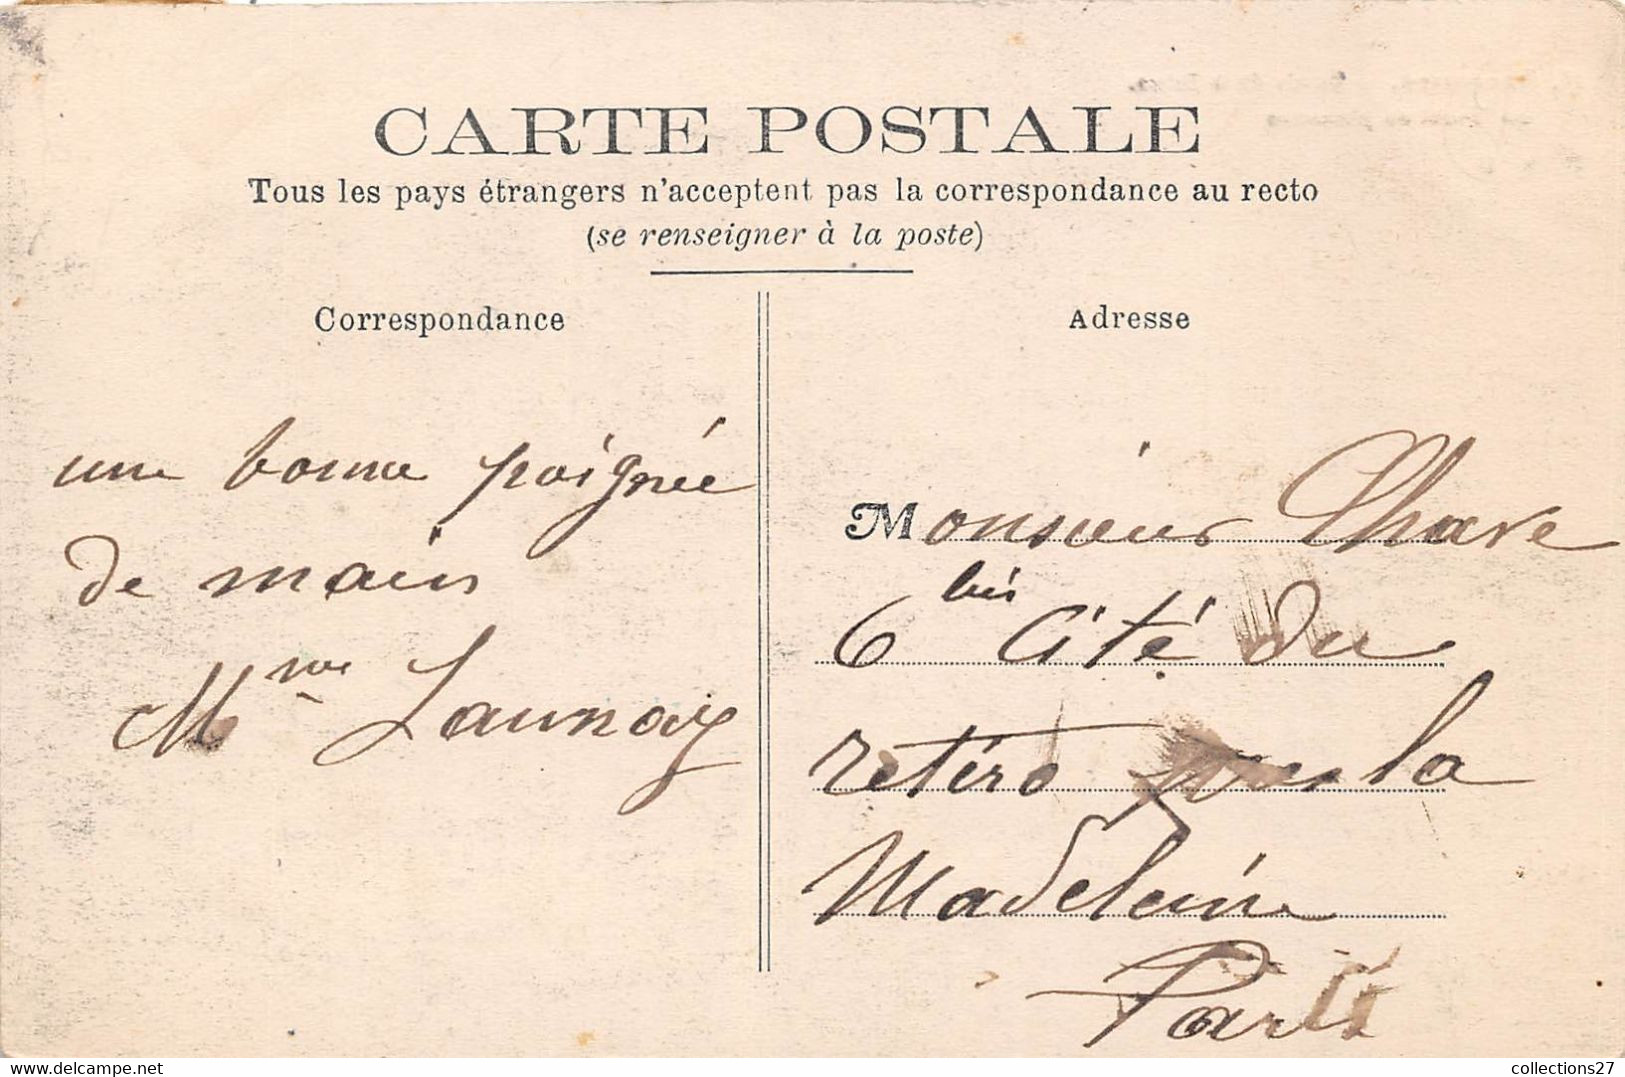 CARTE POSTALE
Tous les pays étrangers n'acceptent pas la correspondance au recto
(se renseigner à la poste)
Correspondance
une bonne poignée
de main
Mme Launay
Adresse
Monsieur Chave
6 bis Cité du
retiro la
Madeleine
Paris
www.delcampe.net
collections27